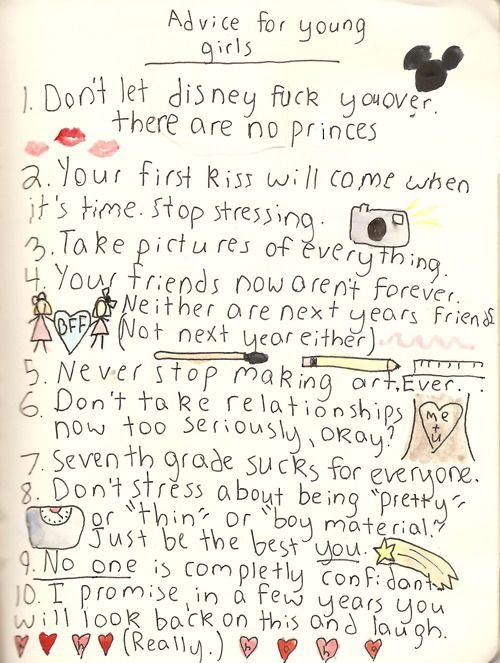 Advice for young
girls
1. Don't let disney fuck you over.
there are no princes
2. Your first kiss will come when
it's time. Stop stressing.
3. Take pictures of everything.
4. Your friends now aren't forever.
Neither are next years friends
BFF
(Not next year either)
5. Never stop making art. Ever.
6. Don't take relationships
now too seriously, okay?
me
+
u
7. Seventh grade sucks for everyone.
8. Don't stress about being "pretty"
or "thin" or "boy material."
Just be the best you.
9. No one is completly confidant
10. I promise, in a few years you
will look back on this and laugh.
(Really.)
h a h a